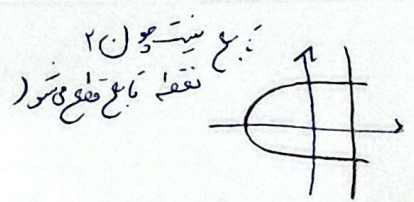 تابع نیست چون ۲
نقطه تابع قطع می‌شود(